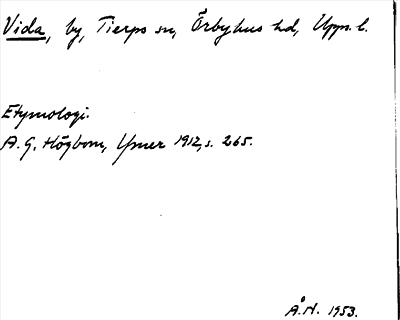 Vida, by, Tierps sn, Örbyhus hd, Upps. l.
Etymologi.
A. G. Högbom, Ymer 1912, s. 265.
Å.N. 1953.